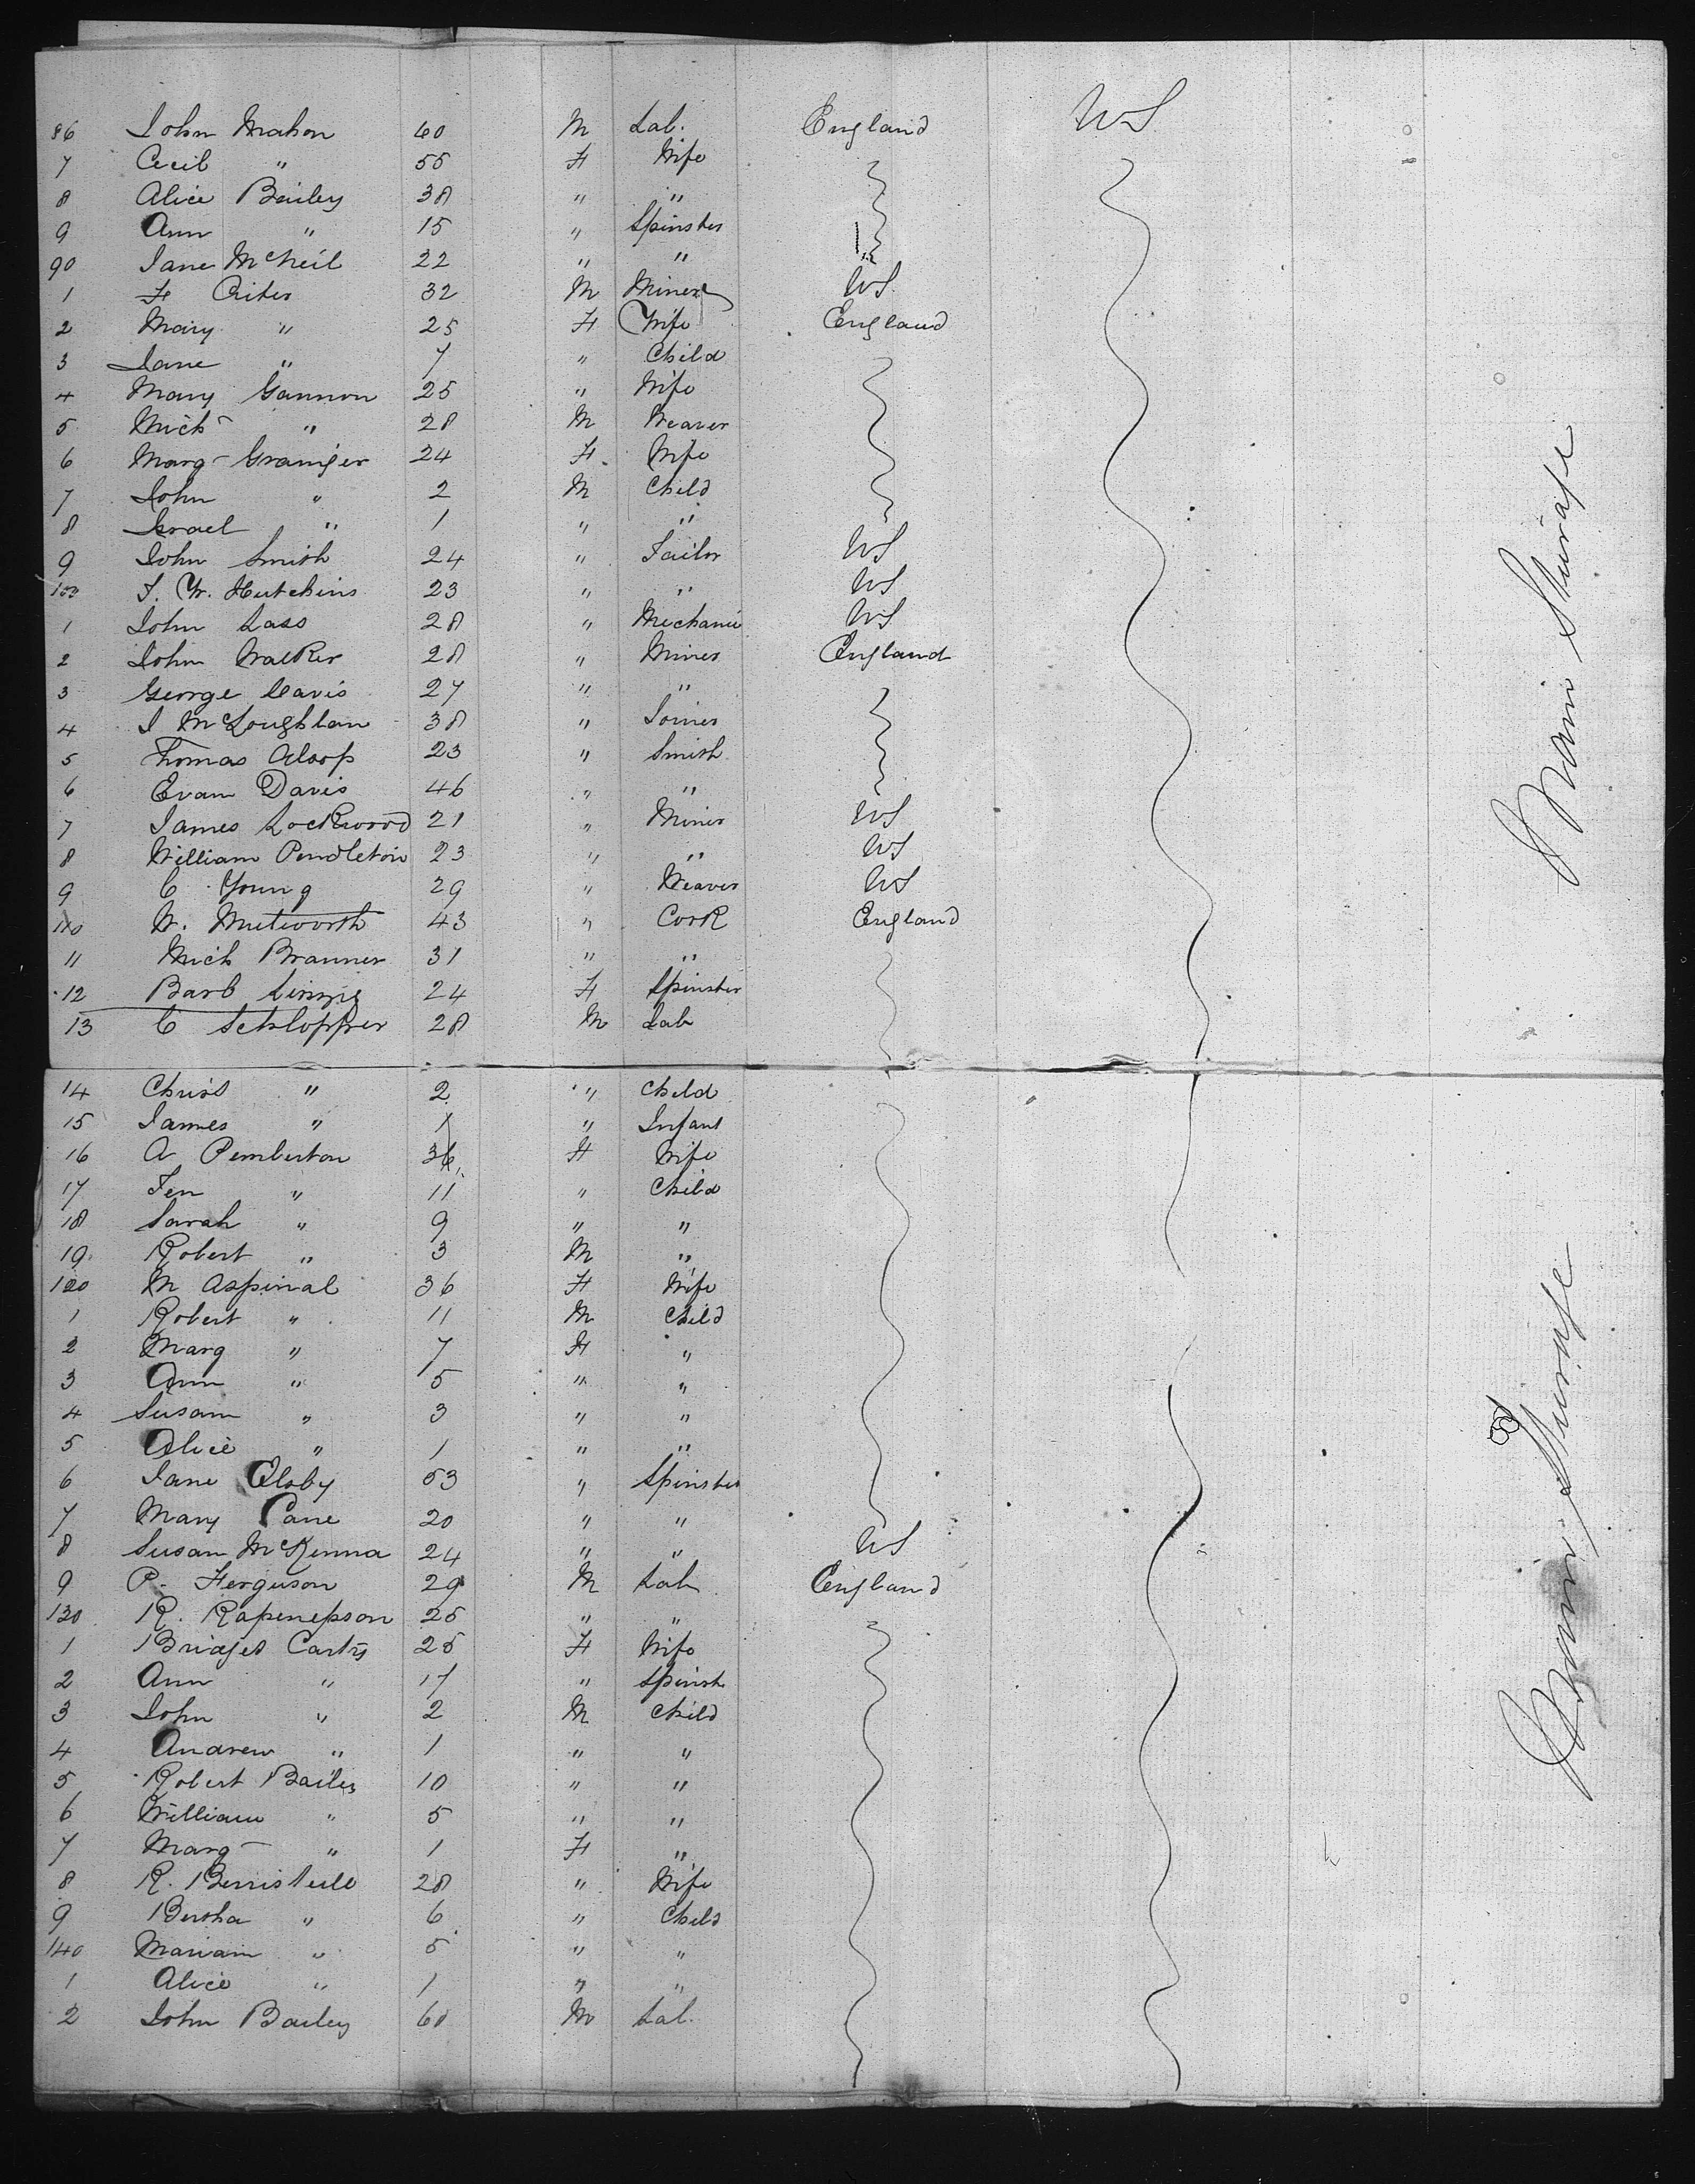 86 John Mahon 60 M Lab. England US
7 Cecil " 55 F Wife
8 Alice Bailey 38 " "
9 Ann " 15 " Spinster
90 Jane McNeil 22 " "
1 F 32 M Miner US
2 Mary " 25 F Wife England
3 Jane " 7 " Child
4 Mary Gannon 25 " Wife
5 Mich " 28 M Weaver
6 Marg Grainger 24 F Wife
7 John " 2 M Child
8 Israel " 1 " "
9 John Smith 24 " Tailor US
100 Hutchins 23 " " US
1 John Lass 28 " Mechanic US
2 John Walker 28 " Miner England
3 George Davis 27 " "
4 J McLoughlan 38 " Joiner
5 Thomas Alsop 23 " Smith
6 Evan Davis 46 " "
7 James Lockwood 21 " Miner US
8 William Pendleton 23 " " US
9 C Young 29 " Weaver US
110 W. 43 " Cook England
11 Mich Branner 31 " "
12 Barb 24 F Spinster
13 C Schlopper 28 M Lab
14 Christ " 2 " Child
15 James " 1 " Infant
16 A Pemberton 36 F Wife
17 Jen " 11 " Child
18 Sarah " 9 " "
19 Robert " 3 M "
120 M Aspinal 36 F Wife
1 Robert " 11 M Child
2 Marg " 7 F "
3 Ann " 5 " "
4 Susan " 3 " "
5 Alice " 1 " "
6 Jane Elsby 53 " Spinster
7 Mary Cane 20 " "
8 Susan McKenna 24 " " US
9 P. Ferguson 29 M Lab England
130 R. 25 " "
1 Bridget 25 F Wife
2 Ann " 17 " Spinst
3 John " 2 M Child
4 Andrew " 1 " "
5 Robert Bailey 10 " "
6 William " 5 " "
7 Marg " 1 F "
8 R. 28 " Wife
9 Bertha " 6 " Child
140 Mariam " 5 " "
1 Alice " 1 " "
2 John Bailey 60 M Lab.
Main Steerage
Main Steerage